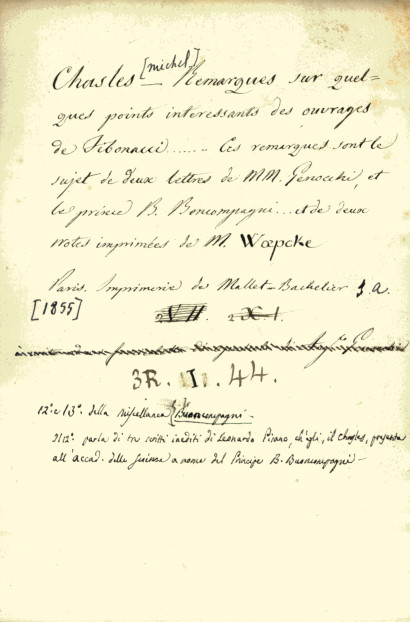 [michel]
Chasles — Remarques sur quel=
ques points interessants des ouvrages
de Fibonacci ........ Ces remarques sont le
sujet de deux lettres de MM. Genocchi, et
le prince B. Boncompagni ... et de deux
notes imprimées de M. Wœpcke
Paris. Imprimerie de Mallet-Bachelier s.a.
[1855]
2 VII. 2 X. 1.
3R. I. 44.
12º. e 13º. della miscellanea Buoncompagni —
Il 12º. parla di tre scritti inediti di Leonardo Pisano, ch'egli, il Chasles, presenta
all'accad. delle scienze a nome del Principe B. Buoncompagni —